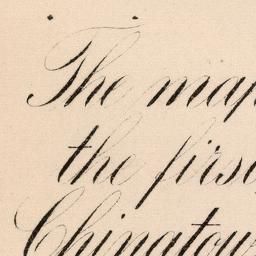 The map
the first
Chinatow